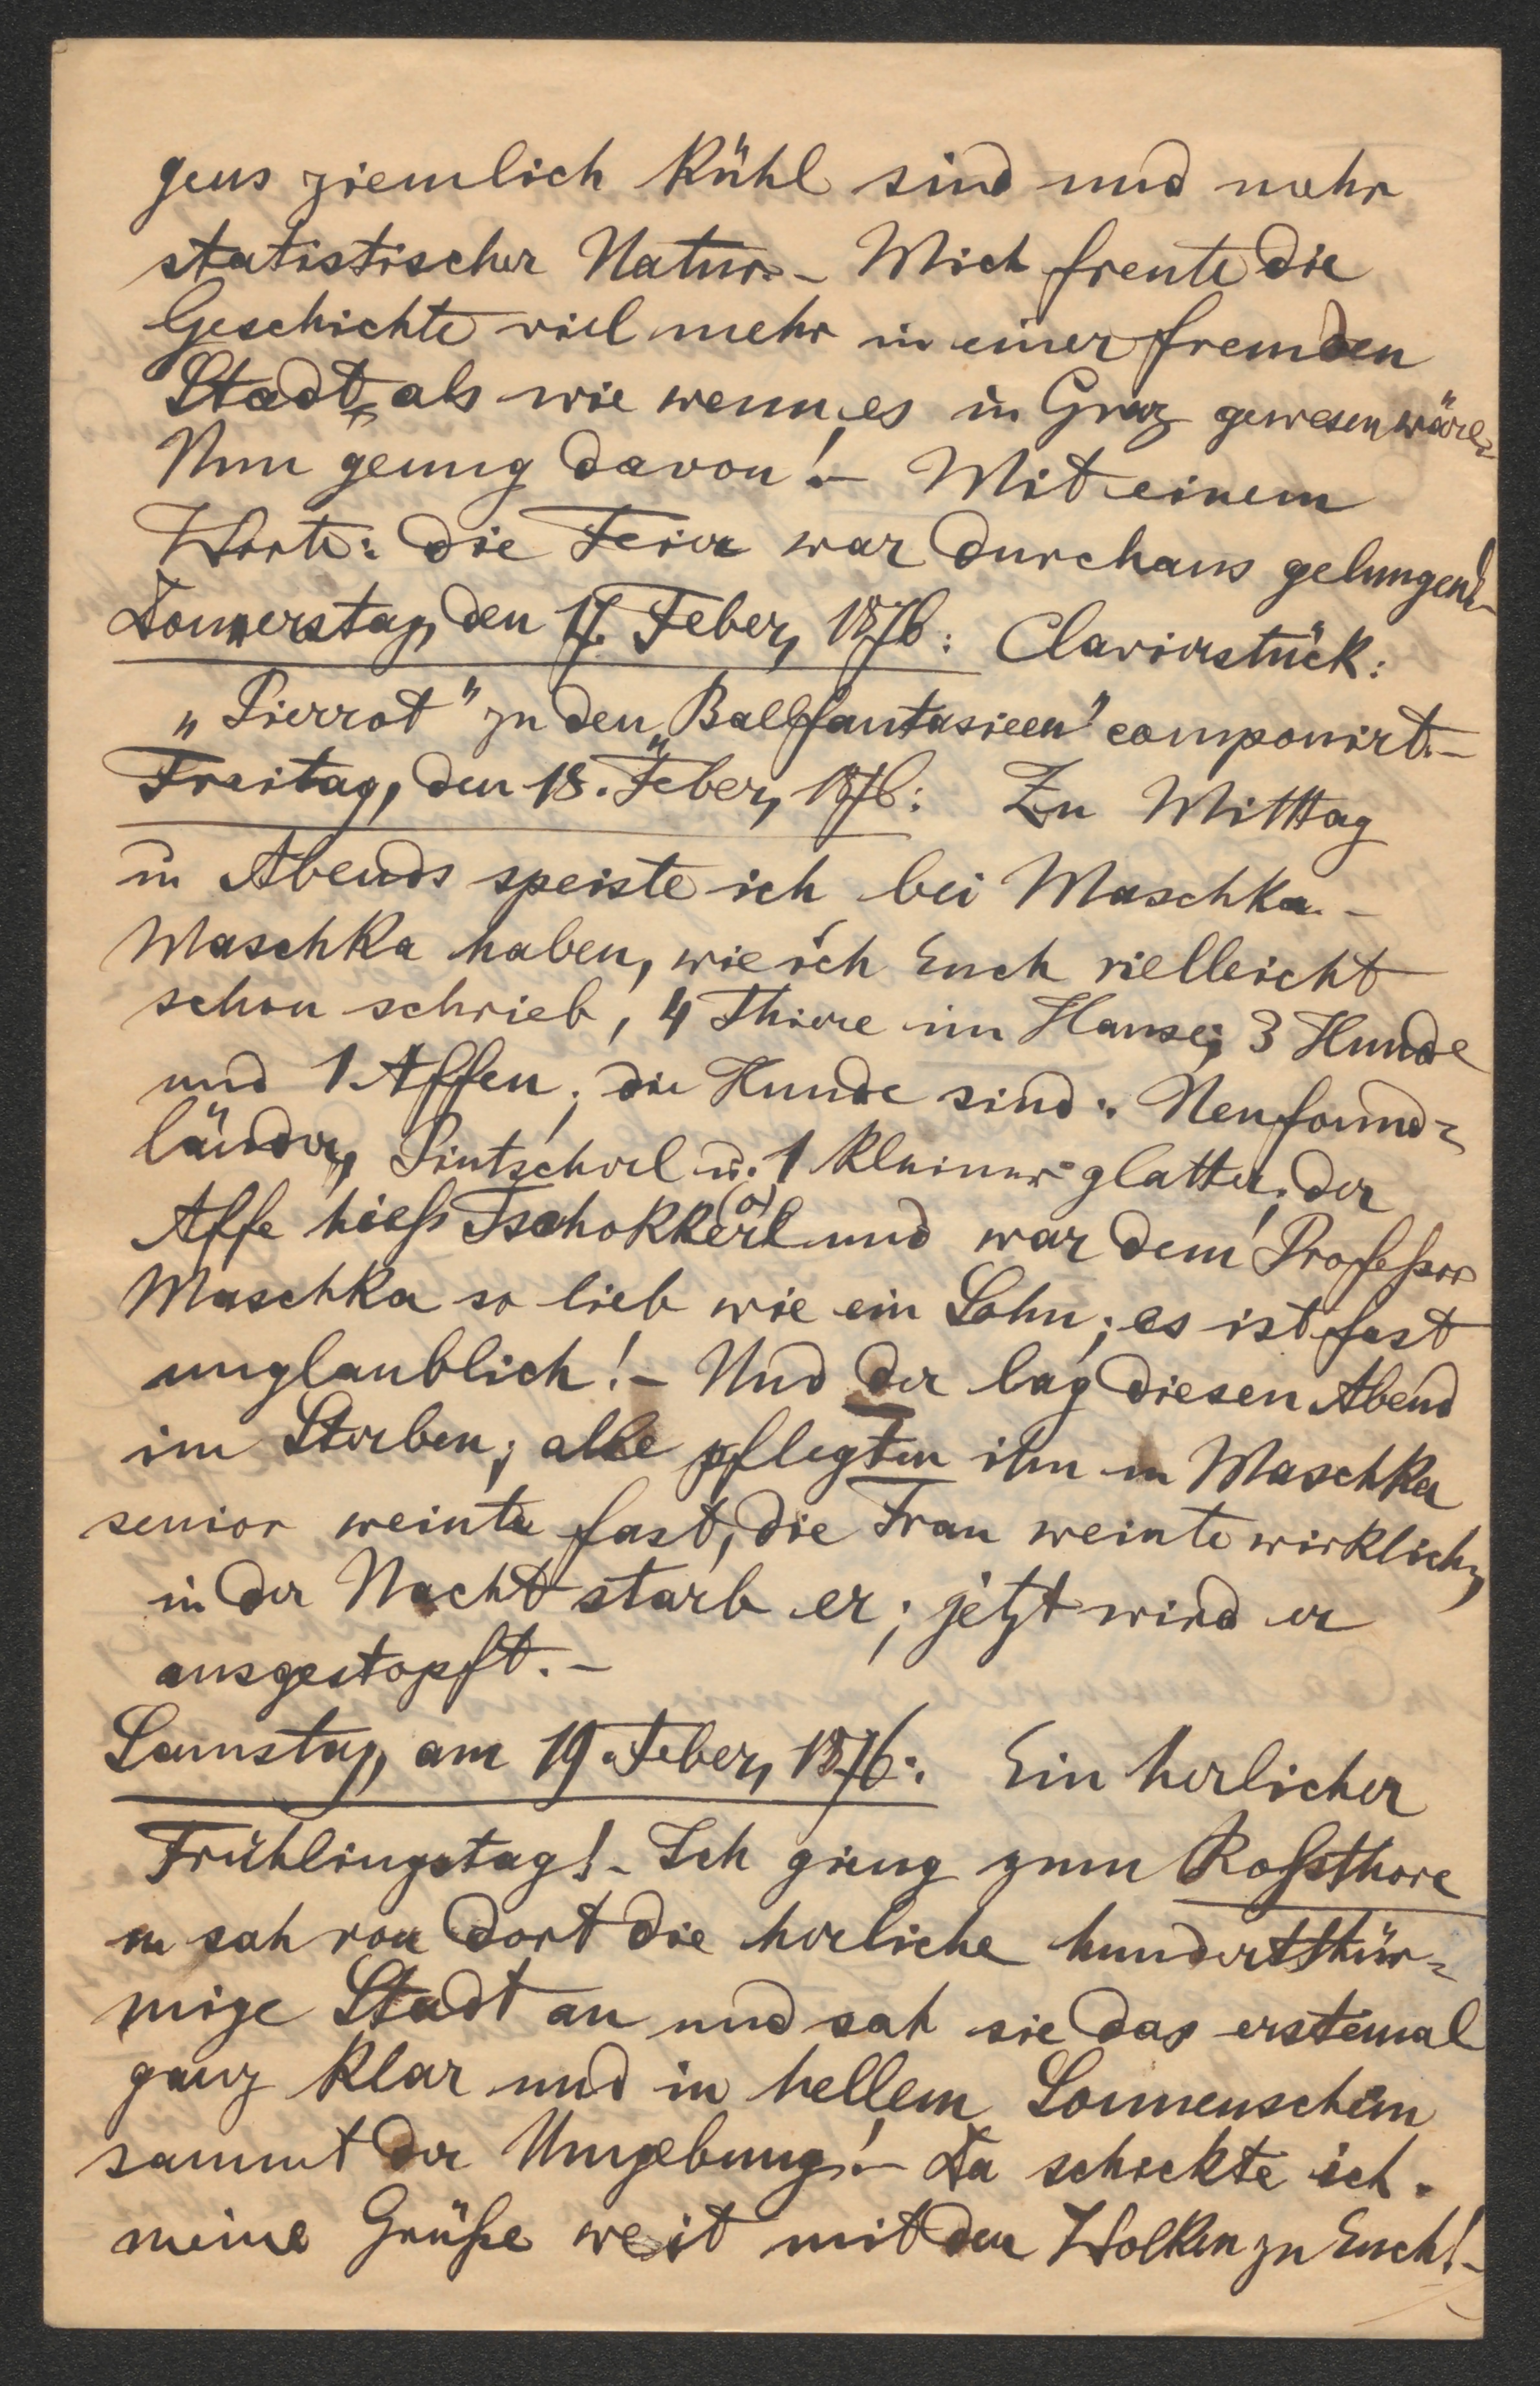 gens ziemlich kühl sind und mehr
statistischer Natur. – Mich freute die
Geschichte viel mehr in einer fremden
Stadt, als wie wenn es in Graz gewesen wäre.
Nun genug davon! – Mit einem
Worte: die Feier war durchaus gelungen! –
Donnerstag, den 17. Feber, 1876: Clavierstück:
„Pierrot" zu den „Ballfantasieen" componirt. –
Freitag, den 18. Feber, 1876: Zu Mitttag
u Abends speiste ich bei Maschka. –
Maschka haben, wie ich Euch vielleicht
schon schrieb, 4 Thiere im Hause; 3 Hunde
und 1 Affen; die Hunde sind: Neufound=
länder, Pintscherl u. 1 kleiner glatter; der
Affe hieß Tschokkerl (a) und war dem Professor
Maschka so lieb wie ein Sohn; es ist fast
unglaublich! – Und der lag diesen Abend
im Sterben; alle pflegten ihn u Maschka
senior weinte fast, die Frau weinte wirklich,
in der Nacht starb er; jetzt wird er
ausgestopft. –
Samstag, am 19. Feber, 1876: Ein herlicher
Frühlingstag! – Ich gieng zum Roßthore
u sah von dort die herliche hundertthür=
mige Stadt an und sah sie das erstemal
ganz klar und in hellem Sonnenschein
sammt der Umgebung! – Da schickte ich
meine Grüße weit mit den Wolken zu Euch! –